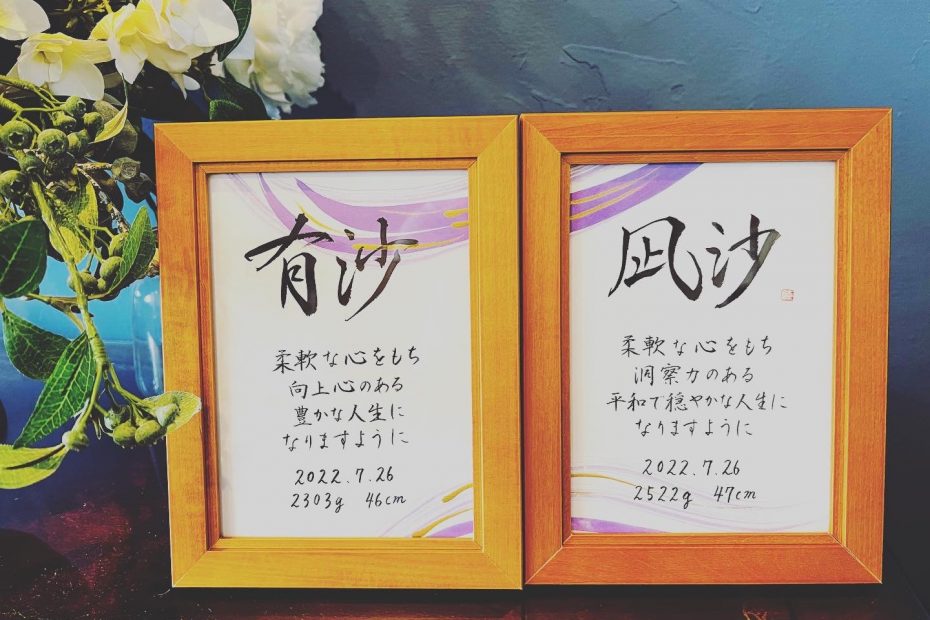 有沙
柔軟な心をもち
向上心のある
豊かな人生に
なりますように
2022.7.26
2303g 46cm
凪沙
柔軟な心をもち
洞察力のある
平和で穏やかな人生に
なりますように
2022.7.26
2522g 47cm